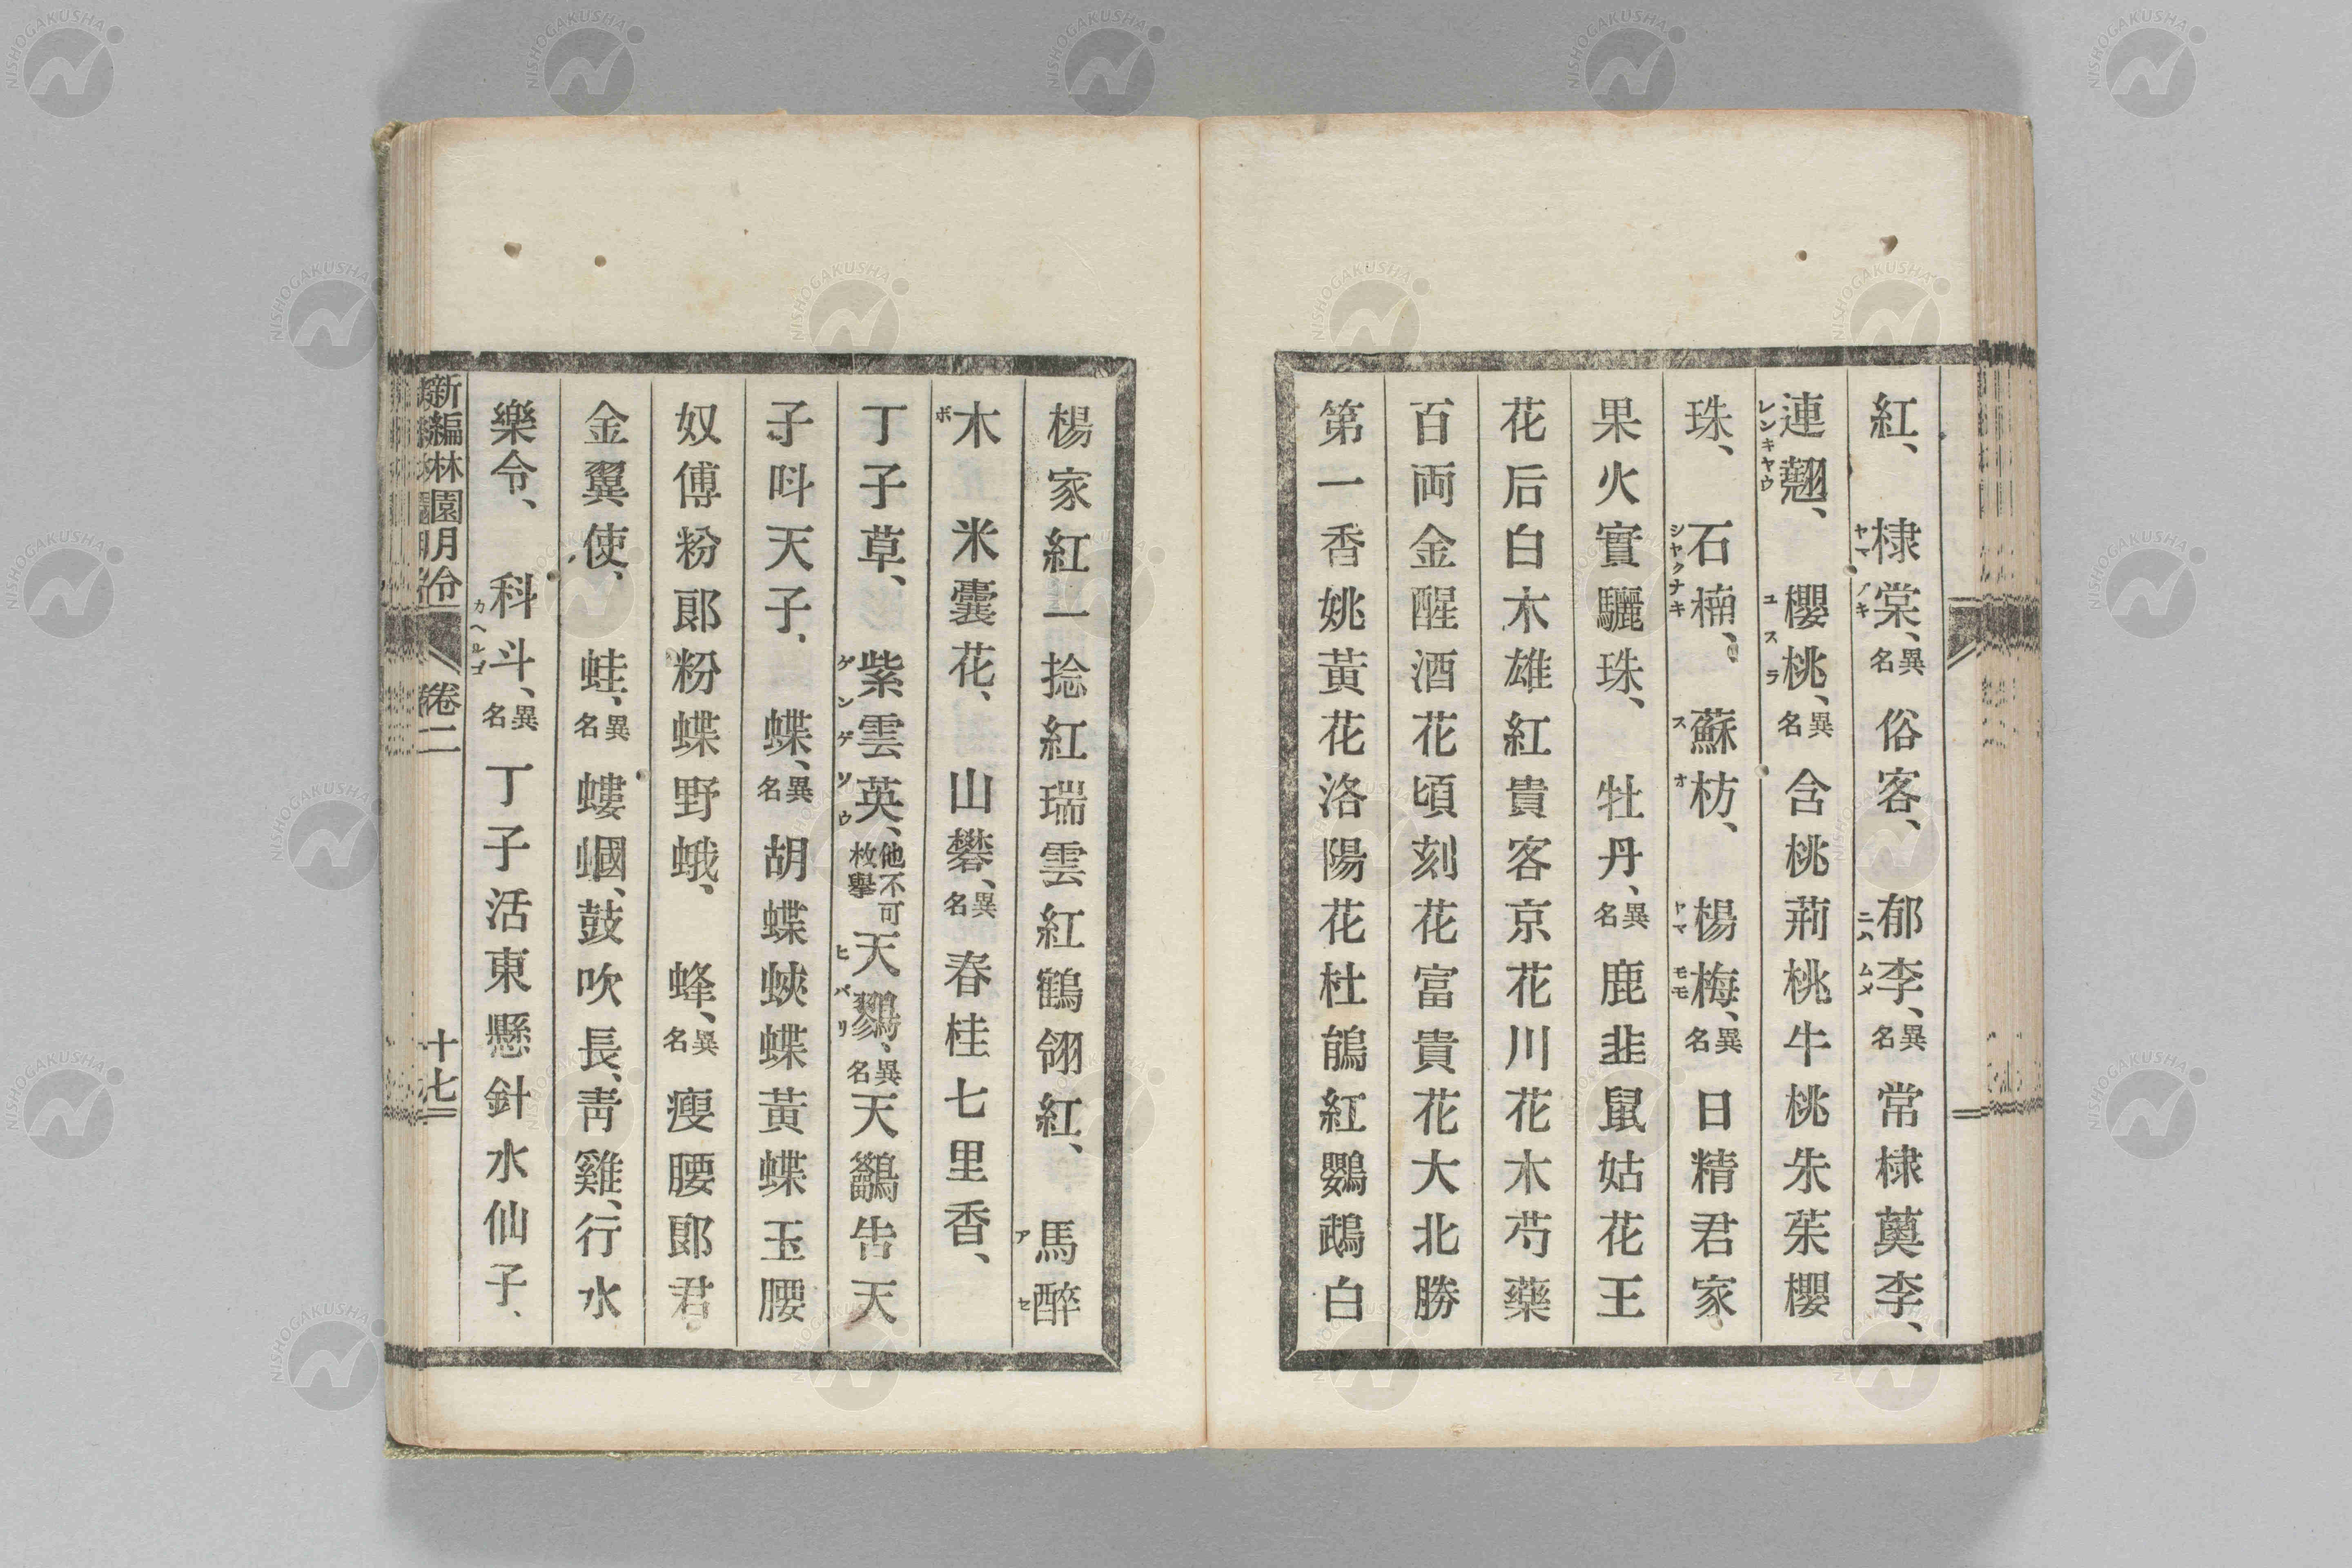 紅、棣棠、異名俗客、郁李、異名常棣薁李、
連翹、櫻桃、異名含桃荊桃牛桃朱茱櫻
珠、石楠、蘇枋、楊梅、異名日精君家
果火實驪珠、牡丹、異名鹿韭鼠姑花王
花后白木雄紅貴客京花川花木芍藥
百両金醒酒花頃刻花富貴花大北勝
第一香姚黃花洛陽花杜鵑紅鸚鵡白
楊家紅一捻紅瑞雲紅鶴翎紅、馬醉
木米囊花、山礬、異名春桂七里香、
丁子草、紫雲英、他不可枚擧天鷚、異名天鸙告天
子呌天子、蝶、異名胡蝶蛺蝶黃蝶玉腰
奴傅粉郎粉蝶野蛾、蜂、異名瘦腰郎君
金翼使、蛙、異名螻蟈、鼓吹長、靑雞、行水
樂令、科斗、異名丁子活東懸針水仙子、
新編林園月令
卷二
十七
ヤマブキ
ニハムメ
レンキヤウ
ユスラ
シヤクナキ
スオ
ヤマモモ
アセ
ボ
ゲンゲソウ
ヒバリ
カヘルゴ
NISHOGAKUSHA